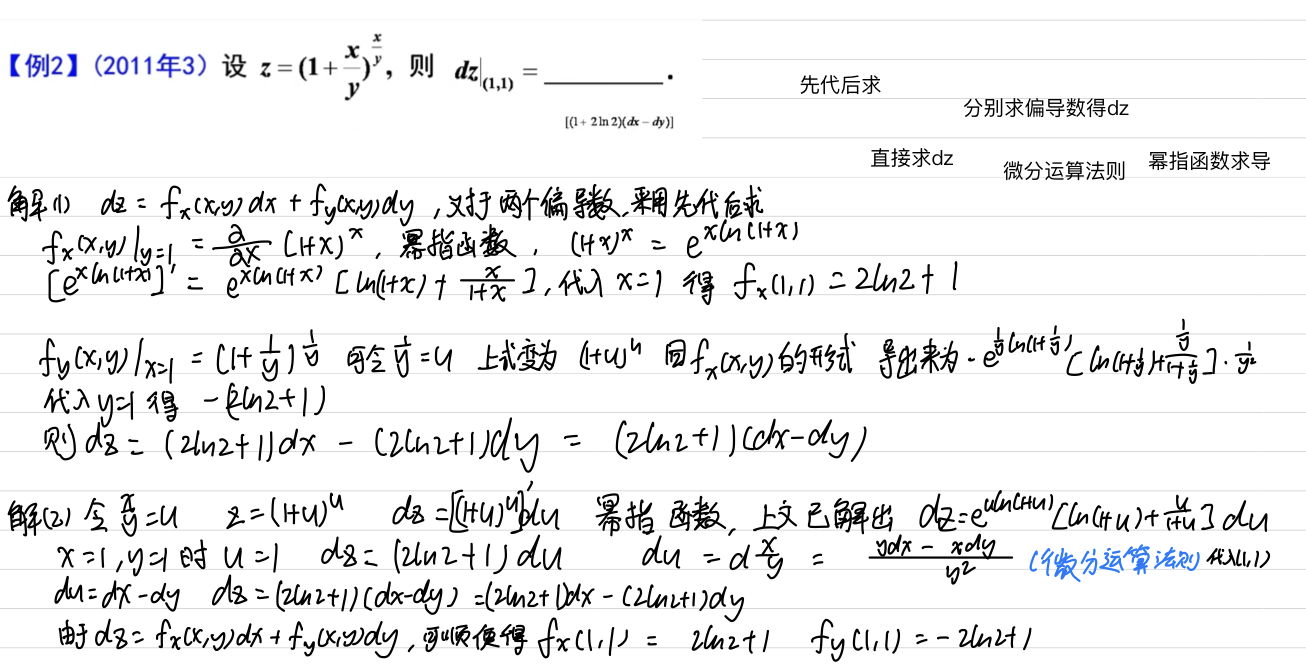 【例2】(2011年3) 设 z = (1+x/y)^(x/y), 则 dz|(1,1) = ________.
[(1+2ln2)(dx-dy)]
先代后求
分别求偏导数得dz
直接求dz 微分运算法则 幂指函数求导
解(1) dz = fx(x,y)dx + fy(x,y)dy, 对于两个偏导数,采用先代后求
fx(x,y)|y=1 = ∂/∂x (1+x)^x, 幂指函数, (1+x)^x = e^(xln(1+x))
[e^(xln(1+x))]' = e^(xln(1+x)) [ln(1+x) + x/(1+x)], 代入 x=1 得 fx(1,1) = 2ln2+1
fy(x,y)|x=1 = (1+1/y)^(1/y) 可令 1/y = u 上式变为 (1+u)^u 回fx(x,y)的形式 导出来为 -e^(1/y ln(1+1/y)) [ln(1+1/y) + (1/y)/(1+1/y)]·1/y²
代入y=1得 -(2ln2+1)
则dz = (2ln2+1)dx - (2ln2+1)dy = (2ln2+1)(dx-dy)
解(2) 令 x/y = u z=(1+u)^u dz=[(1+u)^u]'du 幂指函数, 上文已解出 dz=e^(uln(1+u)) [ln(1+u)+u/(1+u)] du
x=1, y=1时 u=1 dz=(2ln2+1)du du = d x/y = (ydx - xdy)/y² (微分运算法则) 代入(1,1)
du=dx-dy dz=(2ln2+1)(dx-dy) =(2ln2+1)dx-(2ln2+1)dy
由于dz=fx(x,y)dx+fy(x,y)dy, 可顺便得 fx(1,1) = 2ln2+1 fy(1,1) = -2ln2+1